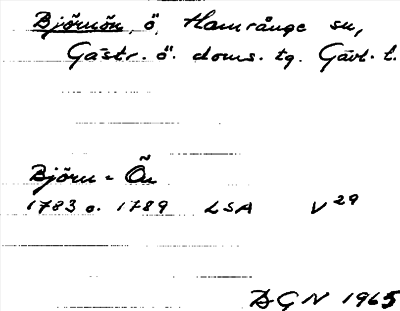 Björnön, ö, Hamrånge sn,
Gästr. ö. doms. tg. Gävl. l.
Björn - Ön
1783 o. 1789 LSA V 29
DGN 1965